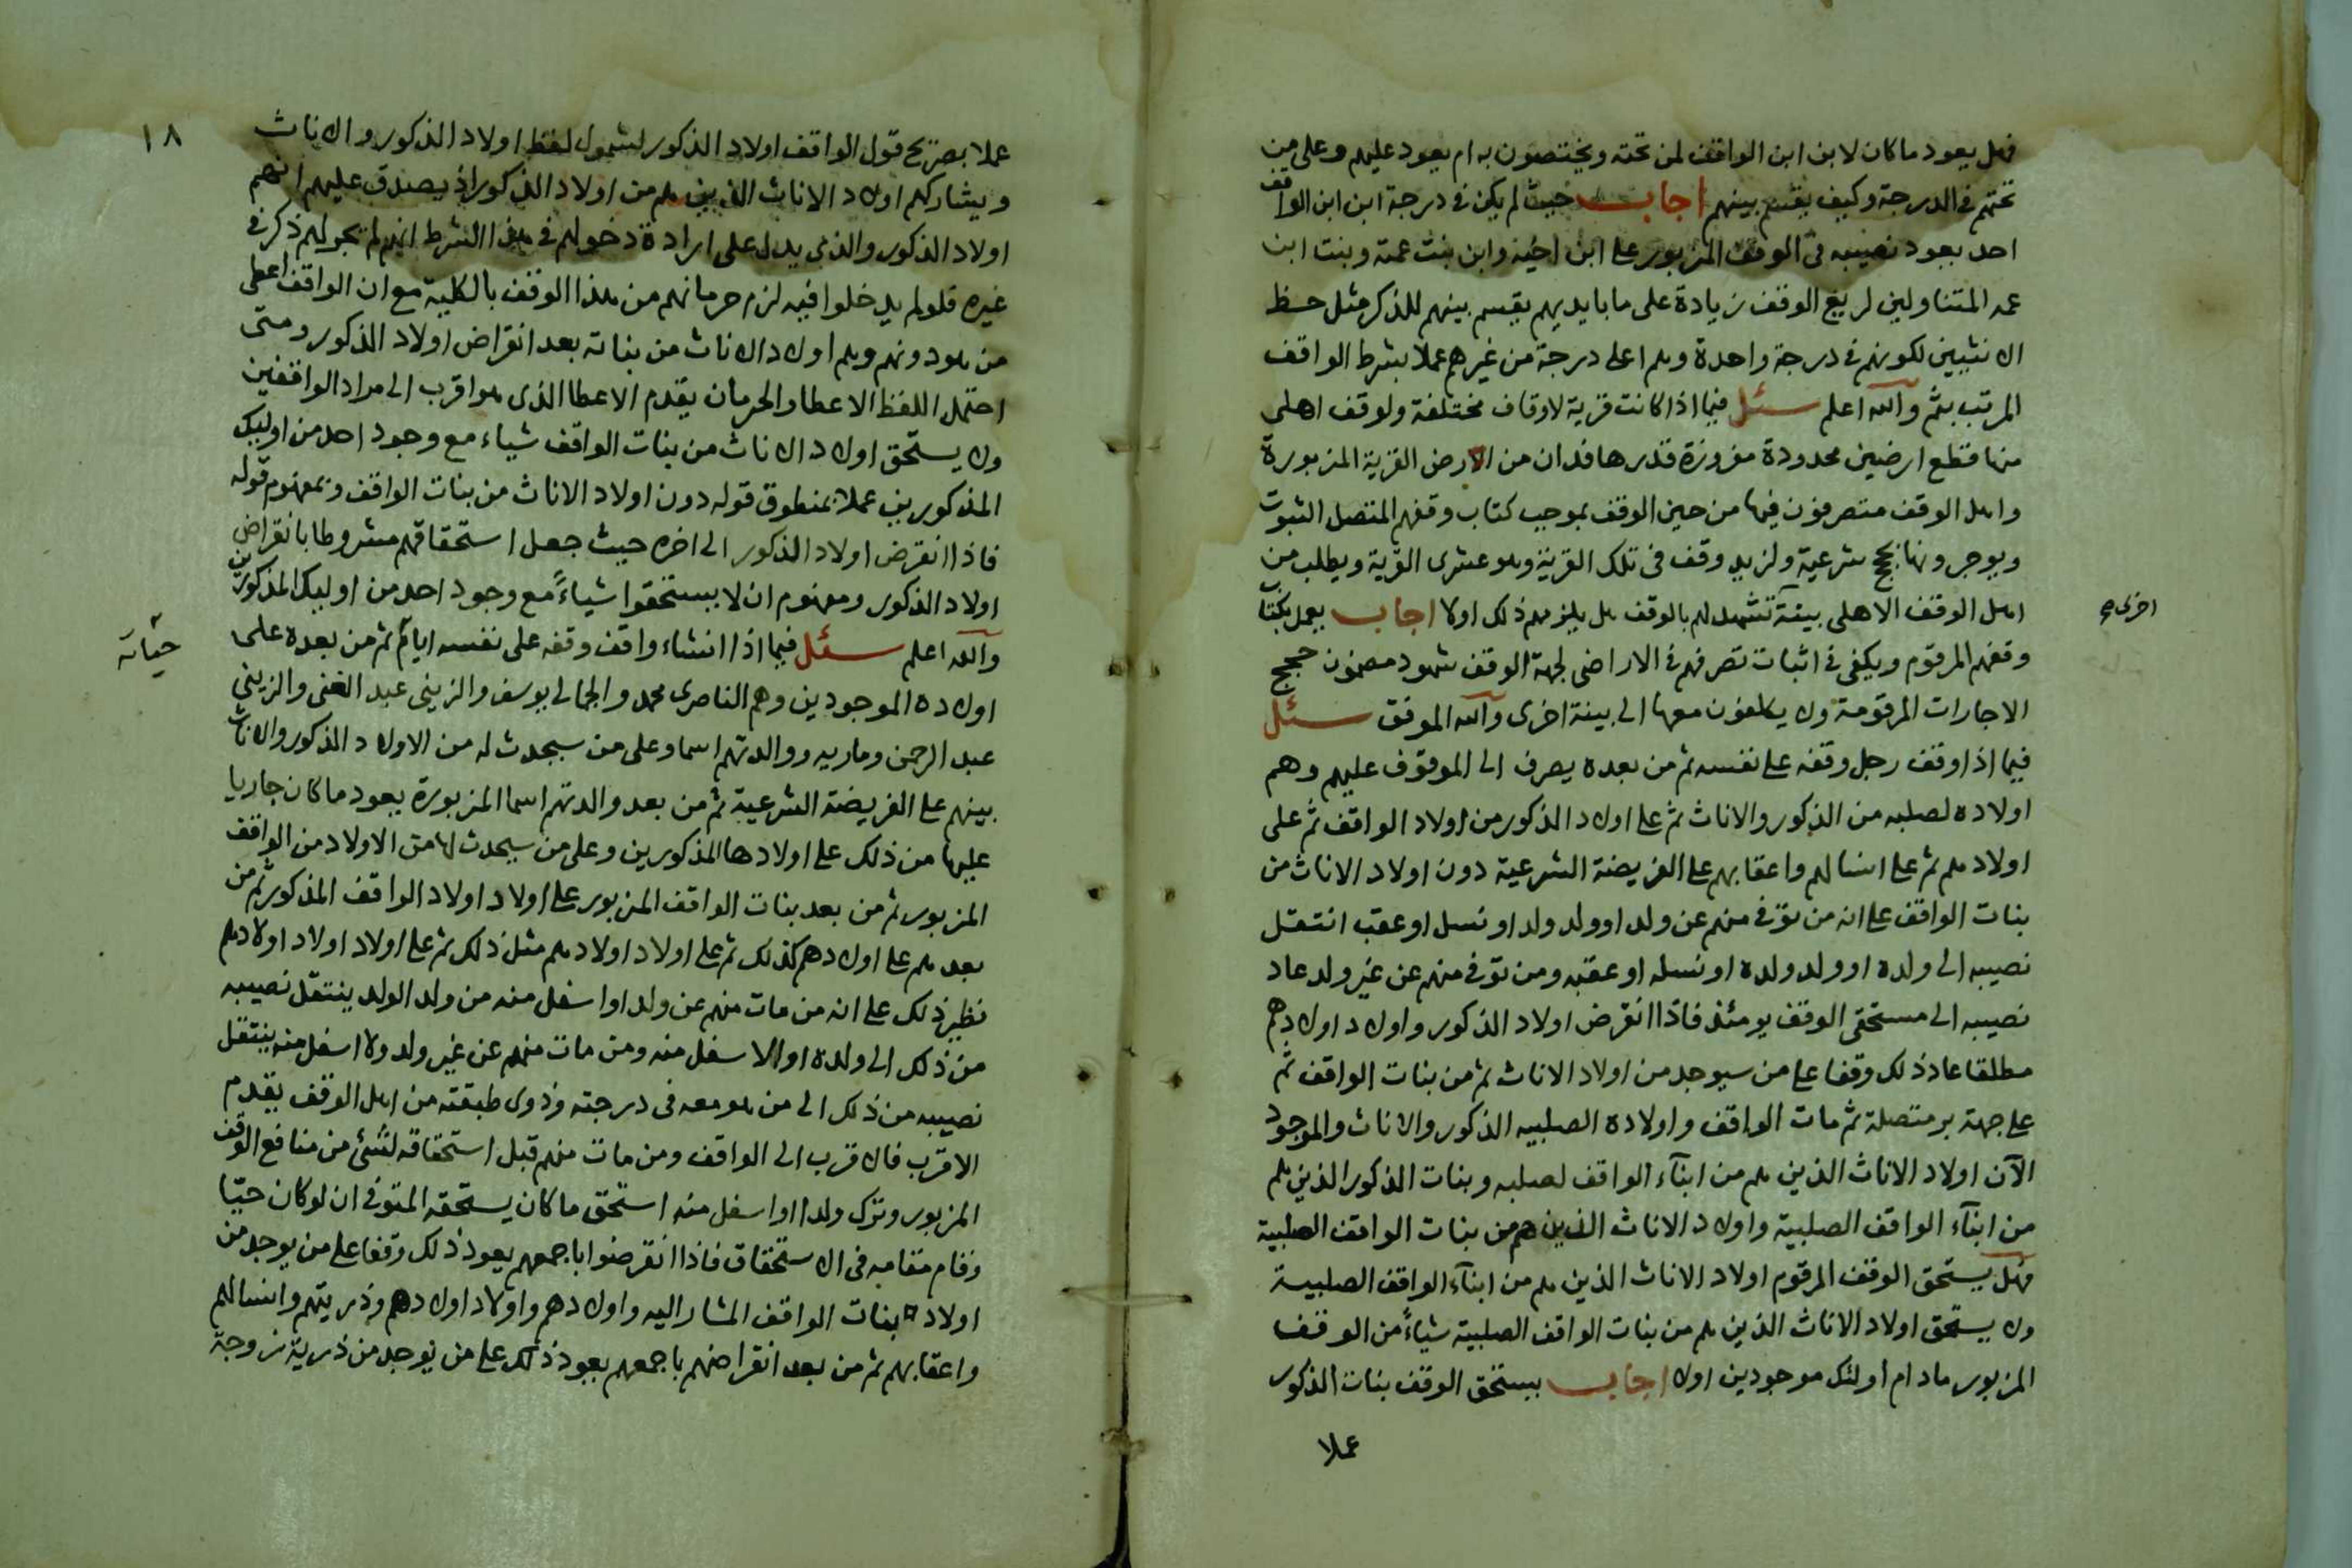 فهل يعود ما كان لابن ابن الواقف لمن تحته ويختصون به ام يعود عليهم وعلى من
تحتهم في الدرجة وكيف يقسم بينهم اجاب حيث لم يكن في درجة ابن ابن الواقف
احد يعود نصيبه في الوقف المزبور على ابن اخيه وابن بنت عمته وبنت ابن
عمه المتناولين لريع الوقف زيادة على ما بايديهم يقسم بينهم للذكر مثل حظ
الانثيين لكونهم في درجة واحدة وهم اعلى درجة من غيرهم عملا بشرط الواقف
المرتب بثم والله اعلم سئل فيما اذا كانت قرية لاوقاف مختلفة ولوقف اهلي
منها قطع ارضين محدودة مفروزة قدرها فدان من الارض القرية المزبورة
واهل الوقف متصرفون فيها من حين الوقف بموجب كتاب وقفهم المتصل الثبوت
ويوجرونها بحجج شرعية ولزيد وقف في تلك القرية وهو عشرى القرية ويطلب من
اهل الوقف الاهلي بينة تشهد لهم بالوقف هل يلزمهم ذلك اولا اجاب يعمل بكتاب
اخرى صح
وقفهم المرقوم ويكفي في اثبات تصرفهم في الاراضي لجهة الوقف شهود مضمون حجج
الاجارات المرقومة ولا يكلفون معها الى بينة اخرى والله الموفق سئل
فيما اذا وقف رجل وقفه على نفسه ثم من بعده يصرف الى الموقوف عليهم وهم
اولاده لصلبه من الذكور والاناث ثم على اولاد الذكور من اولاد الواقف ثم على
اولادهم ثم على انسالهم واعقابهم على الفريضة الشرعية دون اولاد الاناث من
بنات الواقف على انه من توفي منهم عن ولد او ولد ولد او نسل او عقب انتقل
نصيبه الى ولده او ولد ولده او نسله او عقبه ومن توفي منهم عن غير ولد عاد
نصيبه الى مستحقي الوقف يومئذ فاذا انقرض اولاد الذكور واولاد اولادهم
مطلقا عاد ذلك وقفا على من سيوجد من اولاد الاناث ثم من بنات الواقف ثم
على جهة بر متصلة ثم مات الواقف واولاده الصلبيه الذكور والاناث والموجود
الآن اولاد الاناث الذين هم من ابنآء الواقف لصلبه وبنات الذكور الذين هم
من ابنآء الواقف الصلبية واولاد الاناث الذين هم من بنات الواقف الصلبية
فهل يستحق الوقف المرقوم اولاد الاناث الذين هم من ابنآء الواقف الصلبية
ولا يستحق اولاد الاناث الذين هم من بنات الواقف الصلبية شياءً من الوقف
المزبور مادام أولئك موجودين اولا اجاب يستحق الوقف بنات الذكور
عملا
١٨
عملا بصريح قول الواقف اولاد الذكور لشمول لفظ اولاد الذكور والاناث
ويشاركهم اولاد الاناث الذين هم من اولاد الذكور اذ يصدق عليهم انهم
اولاد الذكور والذي يدل على ارادة دخولهم في هذا الشرط انهم لم يجر لهم ذكر في
غيره فلو لم يدخلوا فيه لزم حرمانهم من هذا الوقف بالكلية مع ان الواقف اعطى
من هو دونهم وهم اولاد الاناث من بناته بعد انقراض اولاد الذكور ومتى
احتمل اللفظ الاعطا والحرمان يقدم الاعطا الذى هو اقرب الى مراد الواقفين
ولا يستحق اولاد الاناث من بنات الواقف شياء مع وجود احد من اوليك
المذكورين عملا بمنطوق قوله دون اولاد الاناث من بنات الواقف وبمفهوم قوله
فاذا انقرض اولاد الذكور الى اخره حيث جعل استحقاقهم مشروطا بانقراض
اولاد الذكور ومفهوم ان لا يستحقوا شياءً مع وجود احد من اوليك المذكورين
والله اعلم سئل فيما اذا انشاء واقف وقفه على نفسه ايام ثم من بعده على
حياته
اولاده الموجودين وهم الناصرى محمد والجمالي يوسف والزينى عبد الغنى والزيني
عبد الرحمن وماريه ووالدتهم اسما وعلى من سيحدث له من الاولاد الذكور والاناث
بينهم على الفريضة الشرعية ثم من بعد والدتهم اسما المزبورة يعود ما كان جاريا
عليها من ذلك على اولادها المذكورين وعلى من سيحدث لها من الاولاد من الواقف
المزبور ثم من بعد بنات الواقف المزبور على اولاد اولاد الواقف المذكور ثم من
بعدهم على اولادهم كذلك ثم على اولاد اولادهم مثل ذلك ثم على اولاد اولاد اولادهم
نظير ذلك على انه من مات منهم عن ولد او اسفل منه من ولد الولد ينتقل نصيبه
من ذلك الى ولده او الاسفل منه ومن مات منهم عن غير ولد ولا اسفل منه ينتقل
نصيبه من ذلك الى من هو معه في درجته وذوى طبقته من اهل الوقف يقدم
الاقرب فالاقرب الى الواقف ومن مات منهم قبل استحقاقه لشئ من منافع الوقف
المزبور وترك ولدا او اسفل منه استحق ما كان يستحقه المتوفي ان لو كان حيّا
وقام مقامه في الاستحقاق فاذا انقرضوا باجمعهم يعود ذلك وقفا على من يوجد من
اولاد بنات الواقف المشار اليه واولادهم واولاد اولادهم وذريتهم وانسالهم
واعقابهم ثم من بعد انقراضهم باجمعهم يعود ذلك على من يوجد من ذرية زوجة